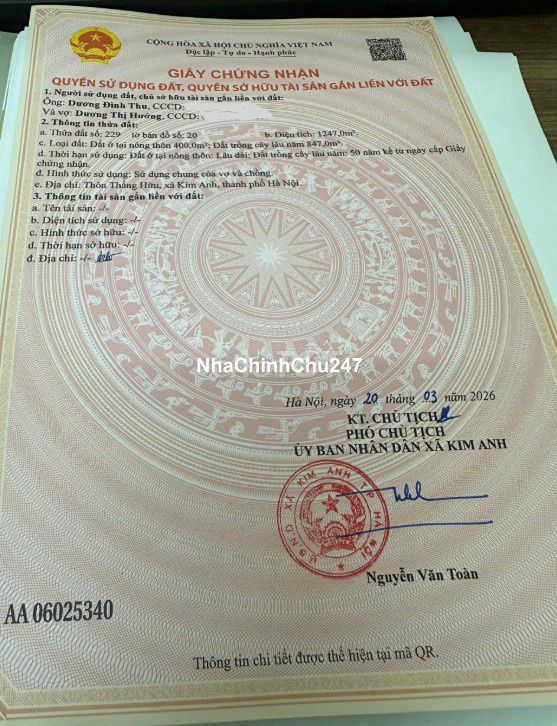 CỘNG HÒA XÃ HỘI CHỦ NGHĨA VIỆT NAM
Độc lập - Tự do - Hạnh phúc
GIẤY CHỨNG NHẬN
QUYỀN SỬ DỤNG ĐẤT, QUYỀN SỞ HỮU TÀI SẢN GẮN LIỀN VỚI ĐẤT
1. Người sử dụng đất, chủ sở hữu tài sản gắn liền với đất:
Ông: Dương Đình Thu, CCCD:
Và vợ: Dương Thị Hướng, CCCD:
2. Thông tin thửa đất:
a. Thửa đất số: 229 tờ bản đồ số: 20 b. Diện tích: 1247,0m².
c. Loại đất: Đất ở tại nông thôn 400,0m²; Đất trồng cây lâu năm 847,0m².
d. Thời hạn sử dụng: Đất ở tại nông thôn: Lâu dài; Đất trồng cây lâu năm: 50 năm kể từ ngày cấp Giấy
chứng nhận.
đ. Hình thức sử dụng: Sử dụng chung của vợ và chồng.
e. Địa chỉ: Thôn Thắng Hữu, xã Kim Anh, thành phố Hà Nội.
3. Thông tin tài sản gắn liền với đất:
a. Tên tài sản: -/-
b. Diện tích sử dụng: -/-
c. Hình thức sở hữu: -/-
d. Thời hạn sở hữu: -/-
đ. Địa chỉ: -/-
NhaChinhChu247
Hà Nội, ngày 20 tháng 03 năm 2026
KT. CHỦ TỊCH
PHÓ CHỦ TỊCH
ỦY BAN NHÂN DÂN XÃ KIM ANH
U.B.N.D XÃ KIM ANH T.P HÀ NỘI
Nguyễn Văn Toàn
AA 06025340
Thông tin chi tiết được thể hiện tại mã QR.